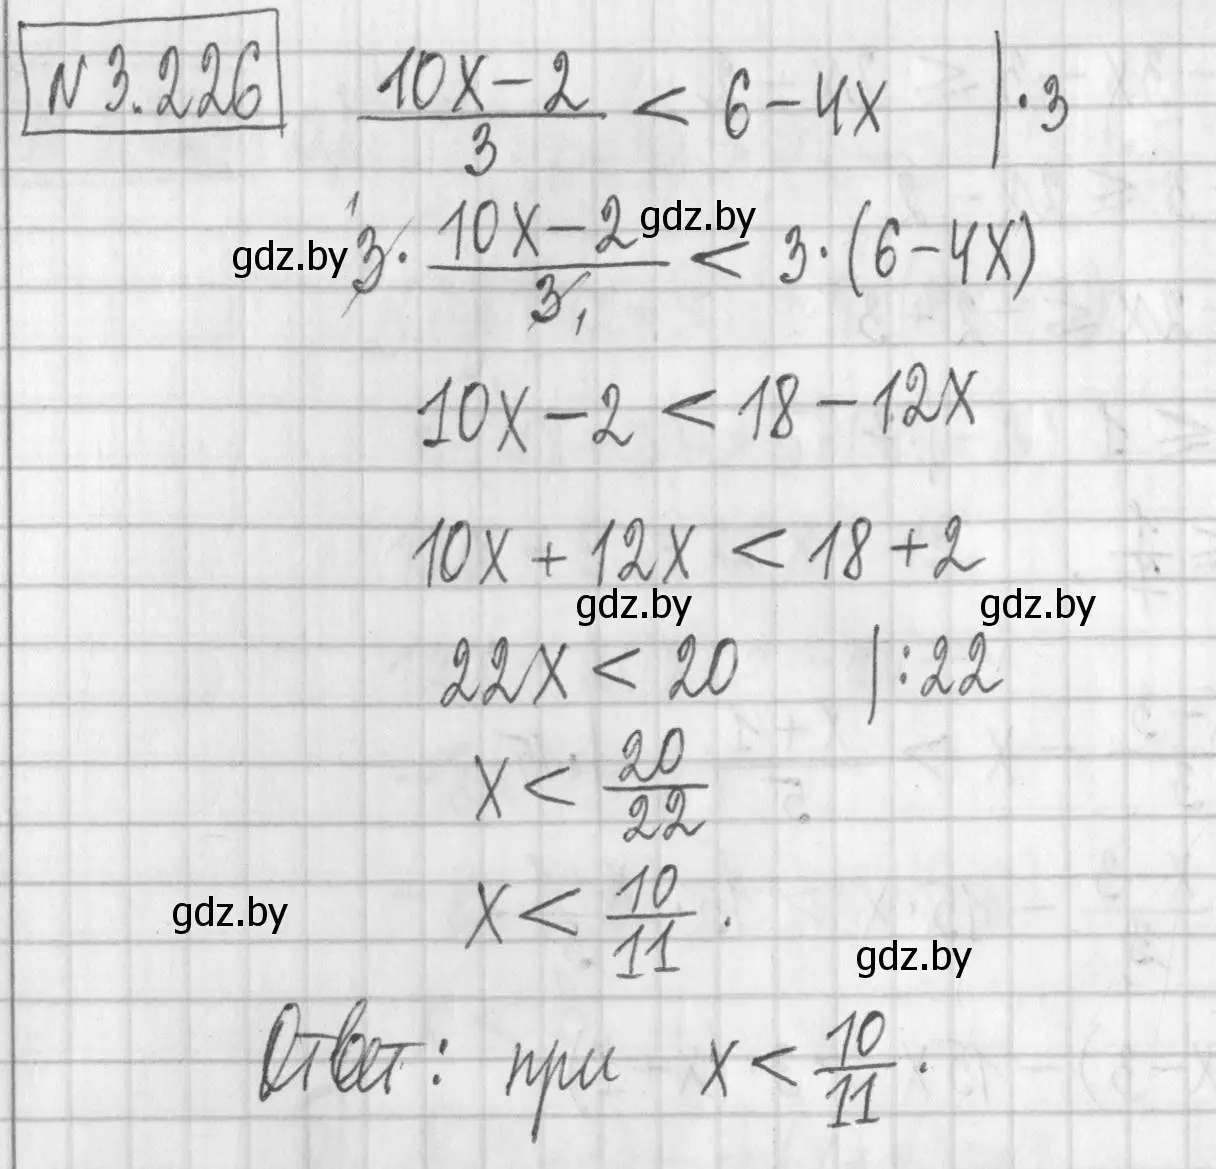 N 3.226 (10x-2)/3 < 6-4x |·3
gdz.by
gdz.by 3· (10x-2)/3 < 3·(6-4x)
1 1
10x-2 < 18-12x
10x+12x < 18+2
gdz.by gdz.by
22x < 20 |:22
x < 20/22
x < 10/11.
gdz.by
gdz.by
Ответ: при x < 10/11.